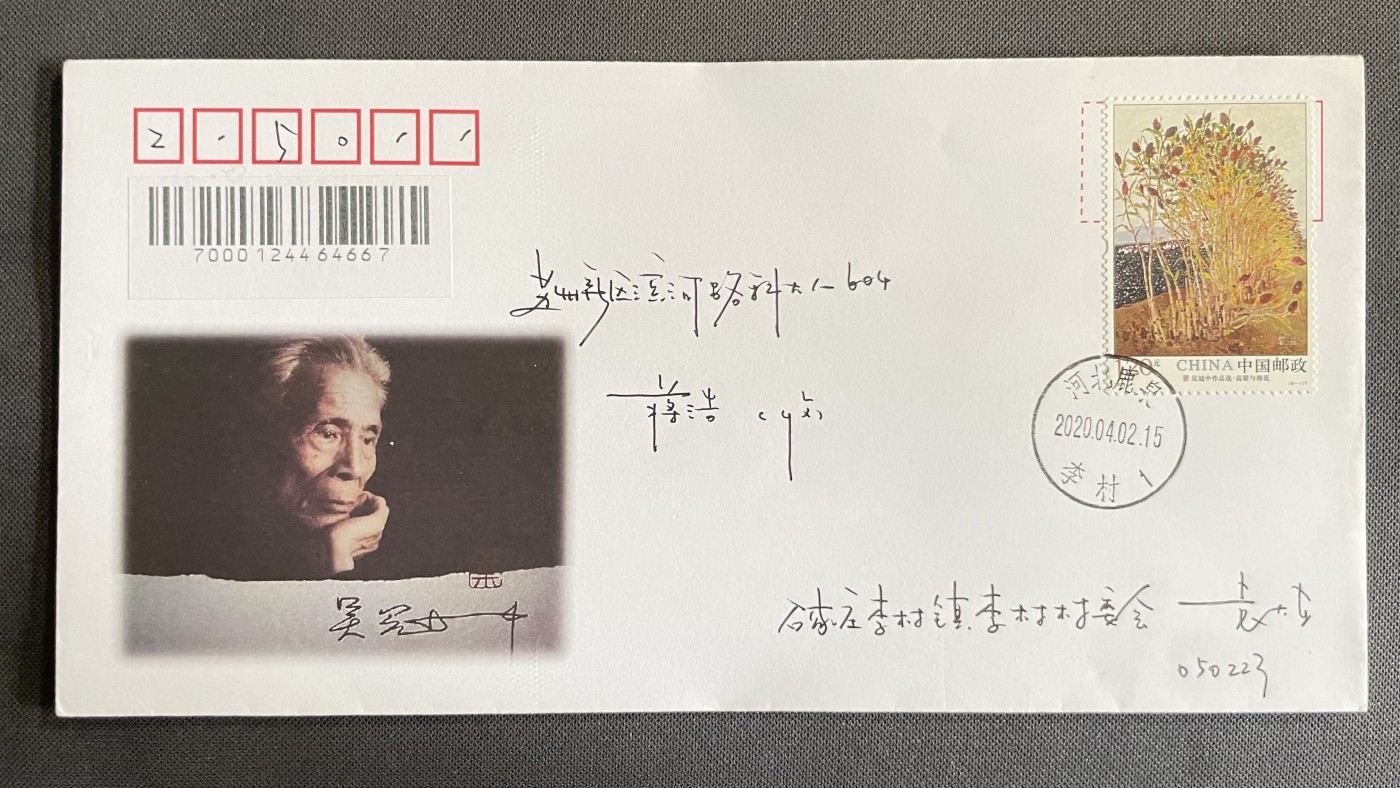 215011
7000124464667
苏州新区滨河路科大1-604
蒋浩 (收)
吴冠中
120元
CHINA 中国邮政
吴冠中作品选·高粱与棉花
河北鹿泉
2020.04.02.15
李村 1
石家庄李村镇李村村委会
050223